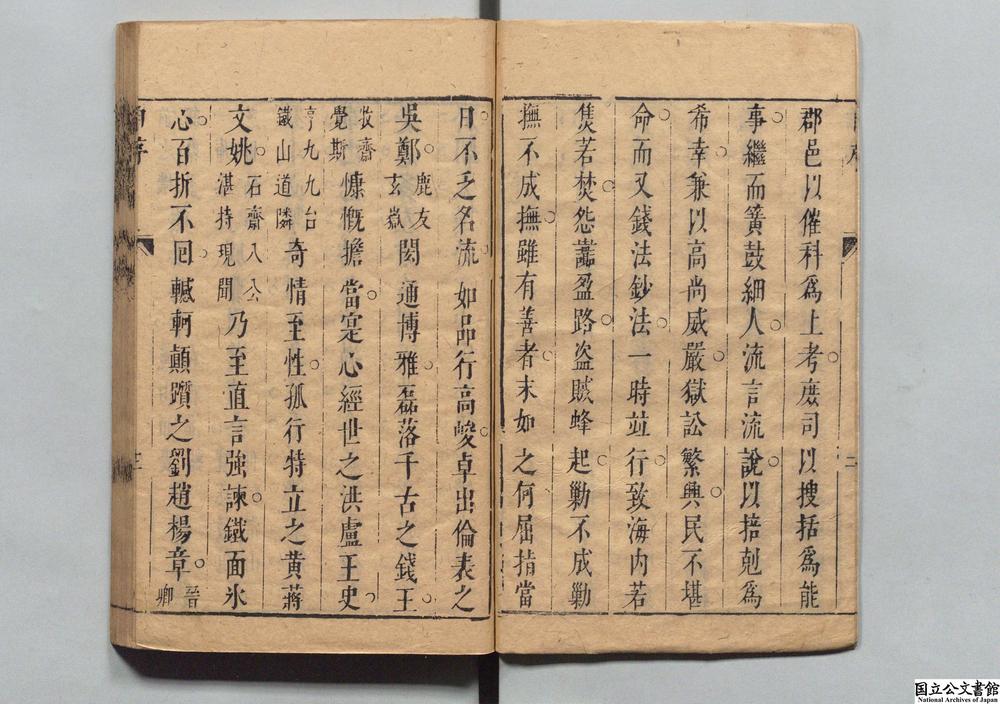 郡邑以催科爲上考庶司以搜括爲能
事繼而簧鼓細人流言流說以掊剋爲
希幸兼以高尚威嚴獄訟繁興民不堪
命而又錢法鈔法一時竝行致海内若
焦若焚怨讟盈路盜賊蜂起勦不成勦
撫不成撫雖有善者末如之何屈指當
日不乏名流如品行高峻卓出倫表之
吳鄭鹿友玄嶽閎通博雅磊落千古之錢王
牧齋覺斯慷慨擔當寔心經世之洪盧王史
亨九九台鐵山道隣奇情至性孤行特立之黃蔣
文姚石齋八公湛持現聞乃至直言強諫鐵面氷
心百折不囘轗軻顛躓之劉趙楊章晉卿
自序
二
三
国立公文書館
National Archives of Japan